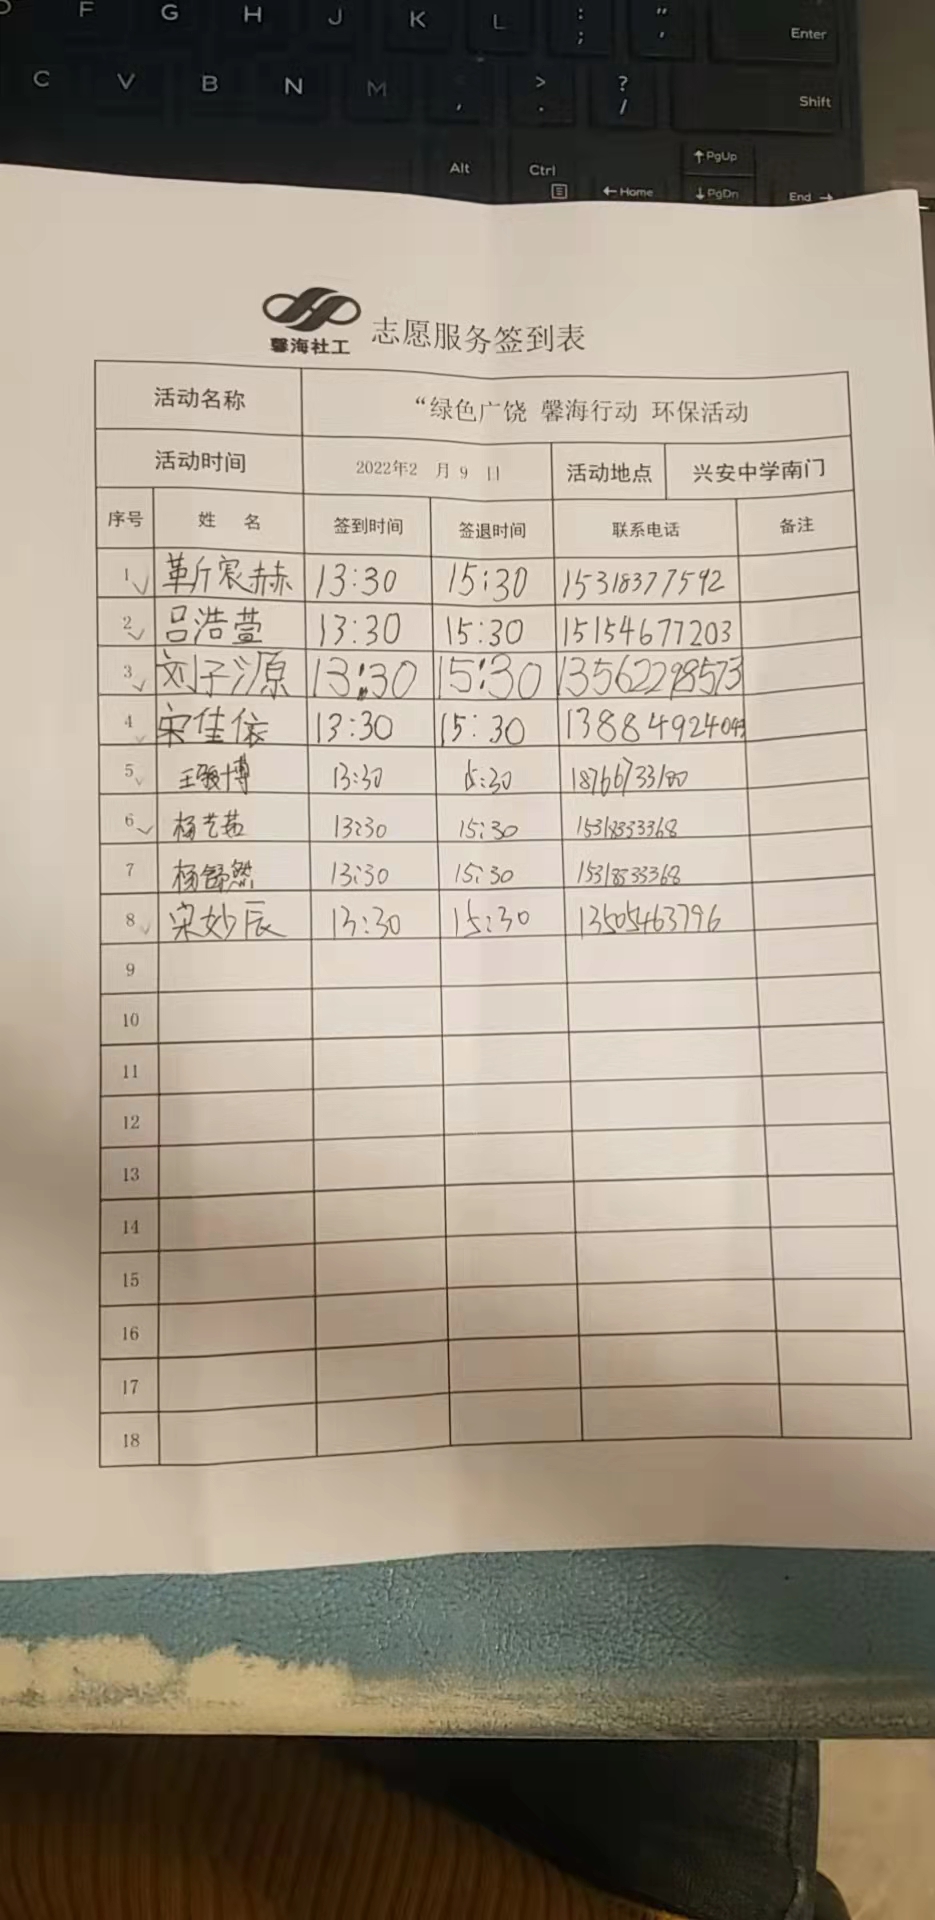 F G H J K L : ; " '
Enter
C V B N M < , > . ? /
Shift
Alt Ctrl ↑PgUp
←Home ↓PgDn End→
馨海社工
志愿服务签到表
活动名称 “绿色广饶 馨海行动 环保活动
活动时间 2022年2 月 9 日 活动地点 兴安中学南门
序号 姓 名 签到时间 签退时间 联系电话 备注
1 靳宸赫 13:30 15:30 15318377592
2 吕浩萱 13:30 15:30 15154677203
3 刘子源 13:30 15:30 13562298573
4 宋佳依 13:30 15:30
5 王骏博 13:30 15:30
6 杨艺茹 13:30 15:30 15318333368
7 杨舒然 13:30 15:30 15318333368
8 宋妙辰 13:30 15:30 13505463796
9
10
11
12
13
14
15
16
17
18